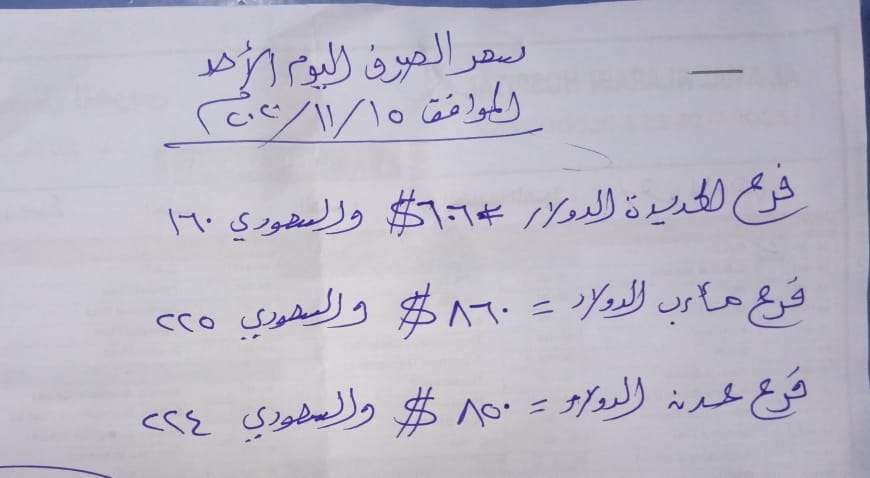 سعر الصرف اليوم الأحد
الموافق ١٥/١١/٢٠٢٠م
فرع الحديدة الدولار = ٦٠٦$ والسعودي ١٦٠
فرع مأرب الدولار = ٨٦٠$ والسعودي ٢٢٥
فرع عدن الدولار = ٨٥٠$ والسعودي ٢٢٤